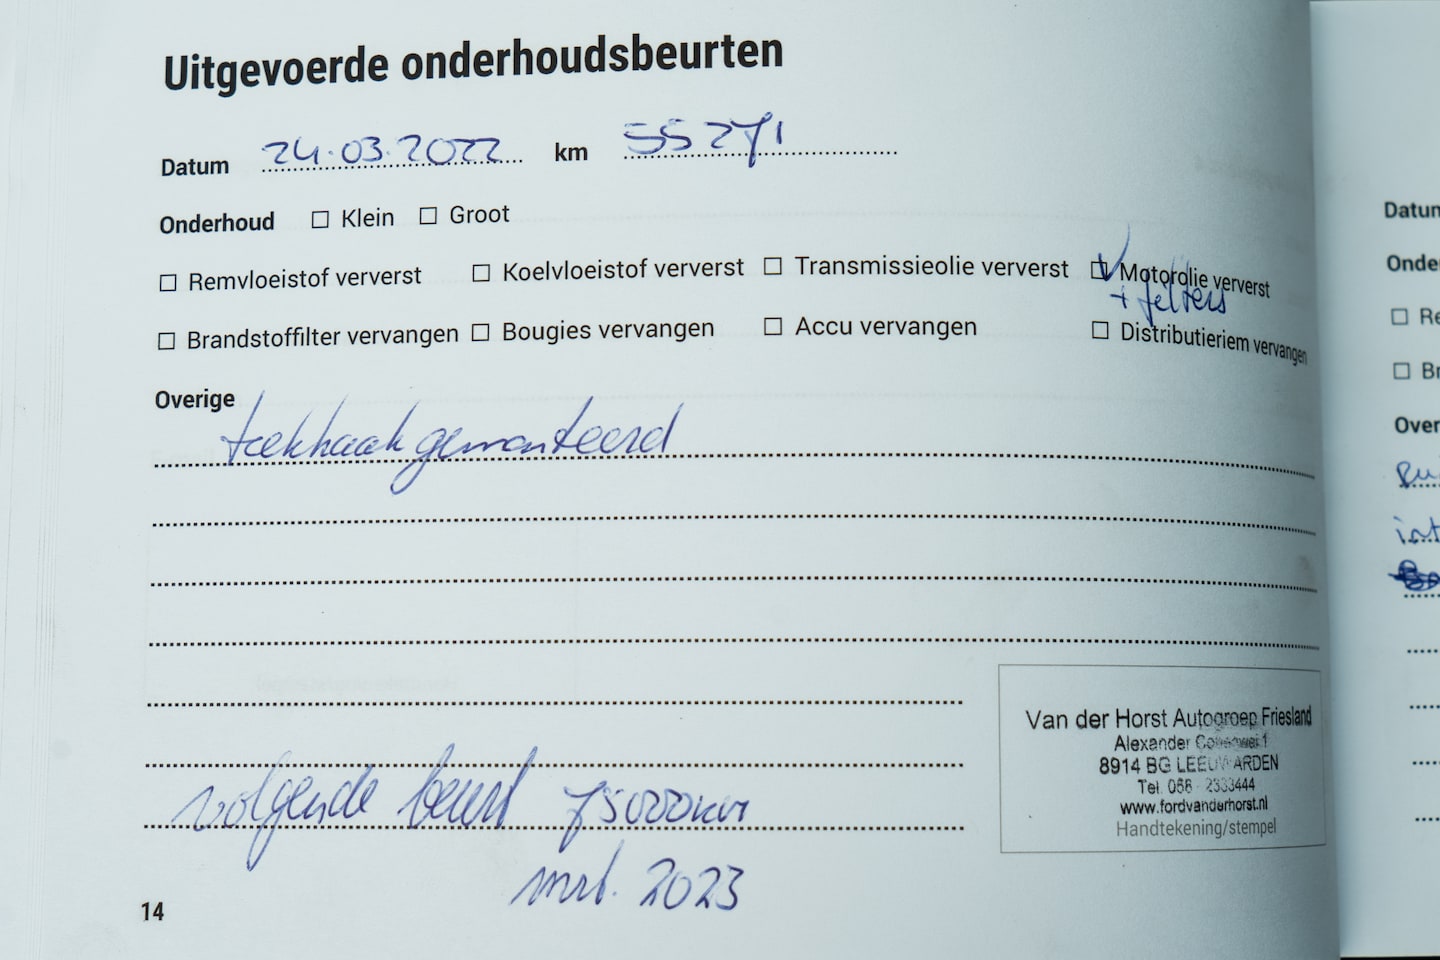 Uitgevoerde onderhoudsbeurten
Datum 24.03.2022 km 55271
Onderhoud ☐ Klein ☐ Groot
☐ Remvloeistof ververst ☐ Koelvloeistof ververst ☐ Transmissieolie ververst ☑ Motorolie ververst
+ filters
☐ Brandstoffilter vervangen ☐ Bougies vervangen ☐ Accu vervangen ☐ Distributieriem vervangen
Overige
trekhaak gemonteerd
volgende beurt 75000km
mrt. 2023
Van der Horst Autogroep Friesland
Alexander
8914 BG LEEUWARDEN
Tel. 058 2333444
www.fordvanderhorst.nl
Handtekening/stempel
14
Datum
Onde
☐ Re
☐ Br
Over